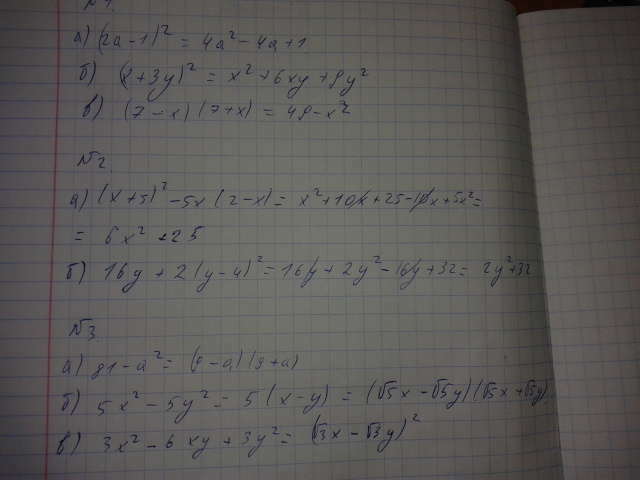 №1.
а) (2a-1)² = 4a² - 4a + 1
б) (x+3y)² = x² + 6xy + 9y²
в) (7-x)(7+x) = 49-x²
№2.
а) (x+5)² - 5x(2-x) = x² + 10x + 25 - 10x + 5x² =
= 6x² + 25
б) 16y + 2(y-4)² = 16y + 2y² - 16y + 32 = 2y² + 32
№3
а) 81 - a² = (9-a)(9+a)
б) 5x² - 5y² = 5(x-y) = (√5x - √5y)(√5x + √5y)
в) 3x² - 6xy + 3y² = (√3x - √3y)²